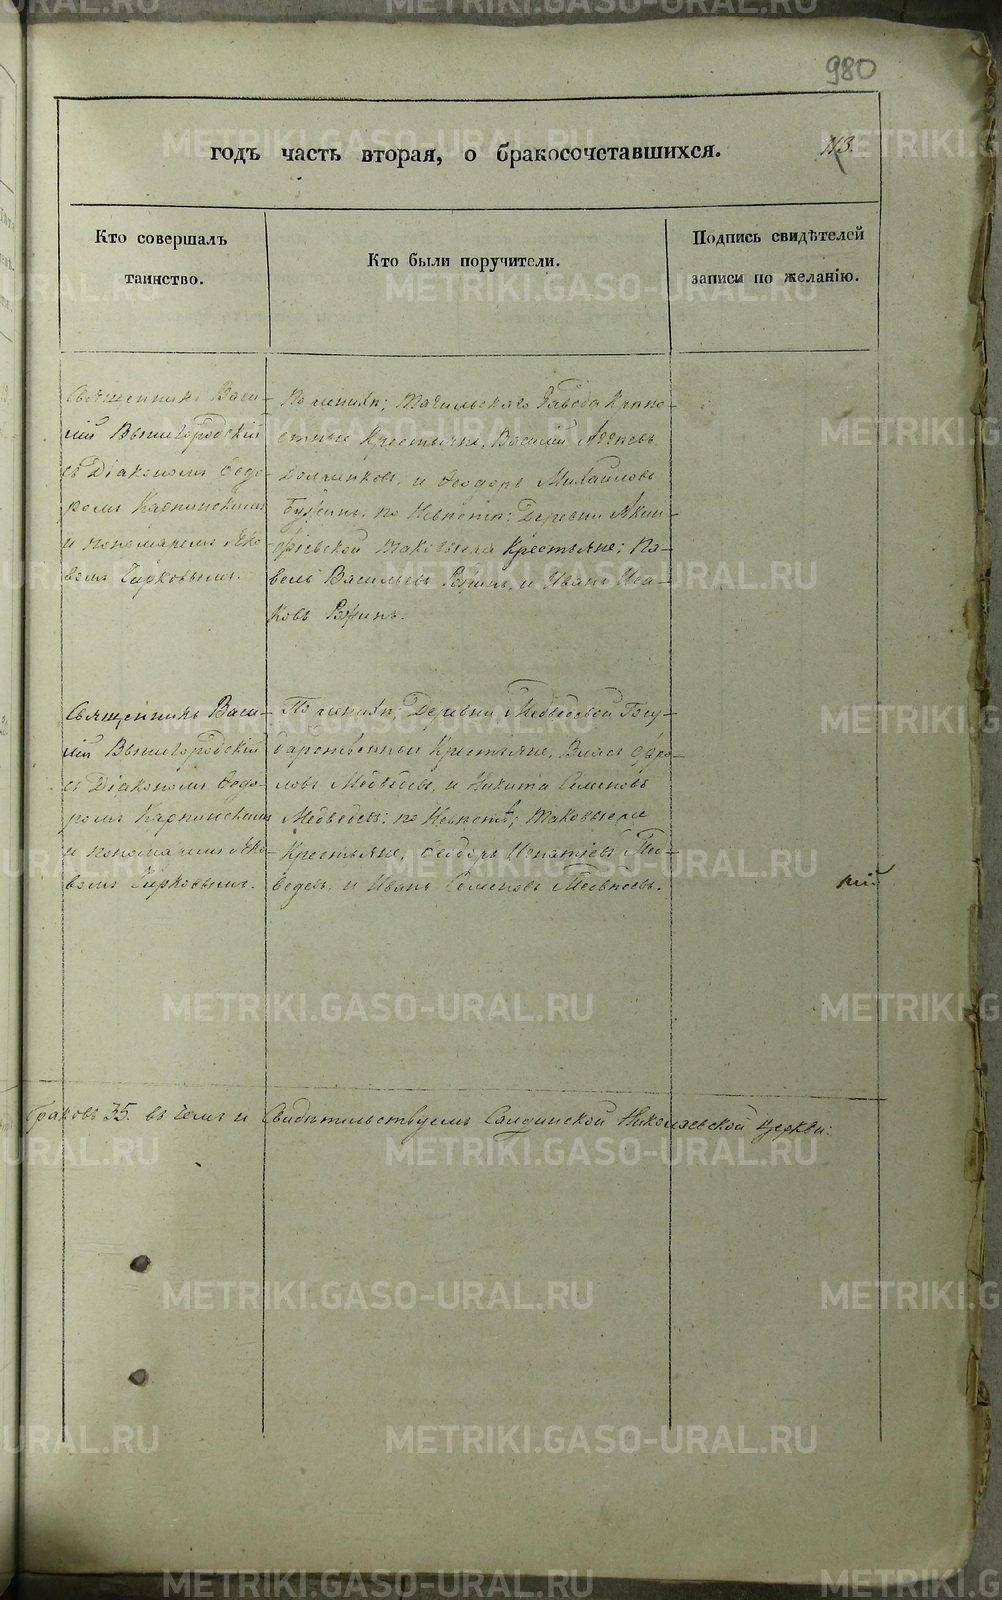 980
годъ часть вторая, о бракосочетавшихся.
113.
Кто совершалъ
таинство.
Кто были поручители.
Подпись свидѣтелей
записи по желанію.
Священникъ Васи-
лій Вышегородскій
съ Діакономъ Ѳедо-
ромъ Карпинскимъ
и пономаремъ Яко-
вомъ Чирковымъ.
По женихѣ; Тагильскаго Завода Крѣпо-
стные Крестьяне, Василій
и Ѳеодоръ Михайловъ
по Невѣстѣ; Деревни Акин-
фіевской таковыеже Крестьяне; Па-
велъ Васильевъ и Иванъ Иса-
ковъ
Священникъ Васи-
лій Вышегородскій
съ Діакономъ Ѳедо-
ромъ Карпинскимъ
и пономаремъ Яко-
вомъ Чирковымъ.
По женихѣ; Деревни Медведевой Госу-
дарственные Крестьяне, Власъ Фро-
ловъ Медведевъ, и Никита Семеновъ
Медведевъ: по Невѣстѣ; таковыеже
Крестьяне, Ѳеодоръ Игнатіевъ Мед-
ведевъ, и Иванъ Семеновъ
кій
Браковъ 35. въ чемъ и Свидѣтельствуемъ Салдинской Николаевской церкви:
METRIKI.GASO-URAL.RU